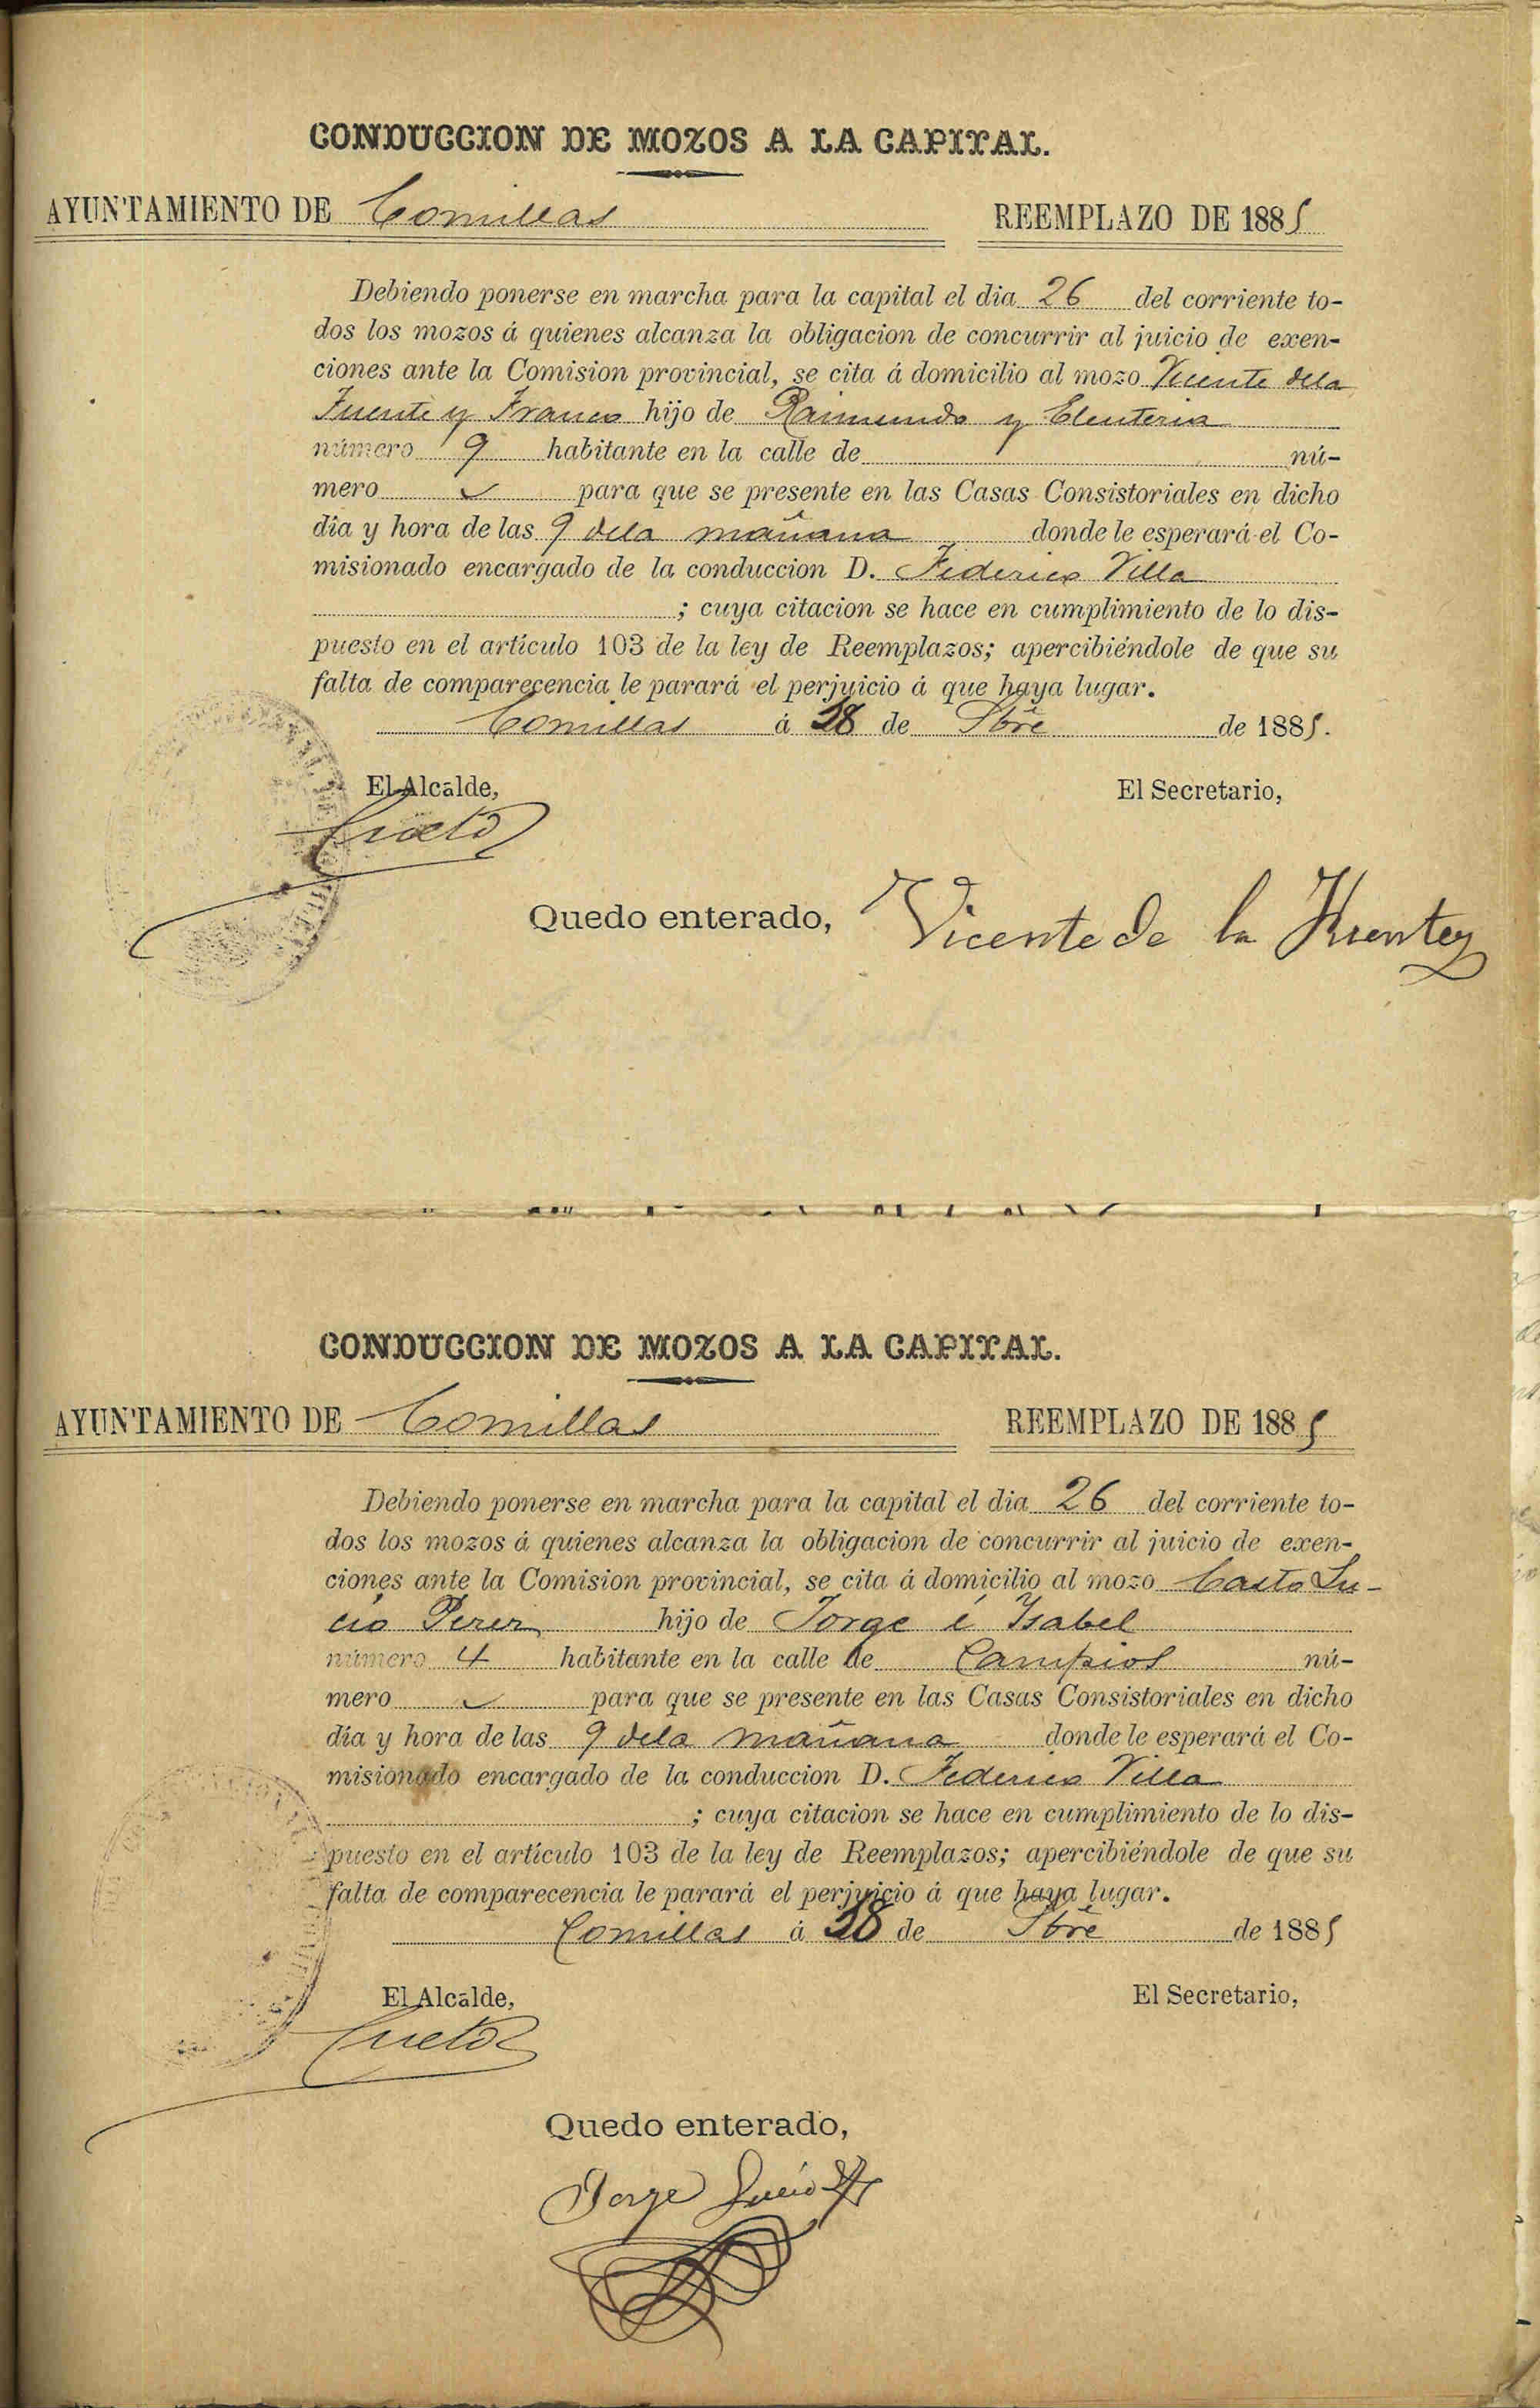 CONDUCCION DE MOZOS A LA CAPITAL.
AYUNTAMIENTO DE Comillas REEMPLAZO DE 1885
Debiendo ponerse en marcha para la capital el dia 26 del corriente to-
dos los mozos á quienes alcanza la obligacion de concurrir al juicio de exen-
ciones ante la Comision provincial, se cita á domicilio al mozo Vicente dela
Fuente y Franco hijo de Raimundo y Eleuteria
número 9 habitante en la calle de nú-
mero para que se presente en las Casas Consistoriales en dicho
dia y hora de las 9 dela mañana donde le esperará el Co-
misionado encargado de la conduccion D. Federico Villa
; cuya citacion se hace en cumplimiento de lo dis-
puesto en el artículo 103 de la ley de Reemplazos; apercibiéndole de que su
falta de comparecencia le parará el perjuicio á que haya lugar.
Comillas á 18 de de 1885.
El Alcalde, El Secretario,
Cueto
Quedo enterado, Vicente de la Fuente
CONDUCCION DE MOZOS A LA CAPITAL.
AYUNTAMIENTO DE Comillas REEMPLAZO DE 1885
Debiendo ponerse en marcha para la capital el dia 26 del corriente to-
dos los mozos á quienes alcanza la obligacion de concurrir al juicio de exen-
ciones ante la Comision provincial, se cita á domicilio al mozo Casto Lu-
cio Perez hijo de Jorge é Ysabel
número 4 habitante en la calle de Campios nú-
mero para que se presente en las Casas Consistoriales en dicho
día y hora de las 9 dela mañana donde le esperará el Co-
misionado encargado de la conduccion D. Federico Villa
; cuya citacion se hace en cumplimiento de lo dis-
puesto en el artículo 103 de la ley de Reemplazos; apercibiéndole de que su
falta de comparecencia le parará el perjuicio á que haya lugar.
Comillas á 18 de de 1885
El Alcalde, El Secretario,
Cueto
Quedo enterado,
Jorge Lucio